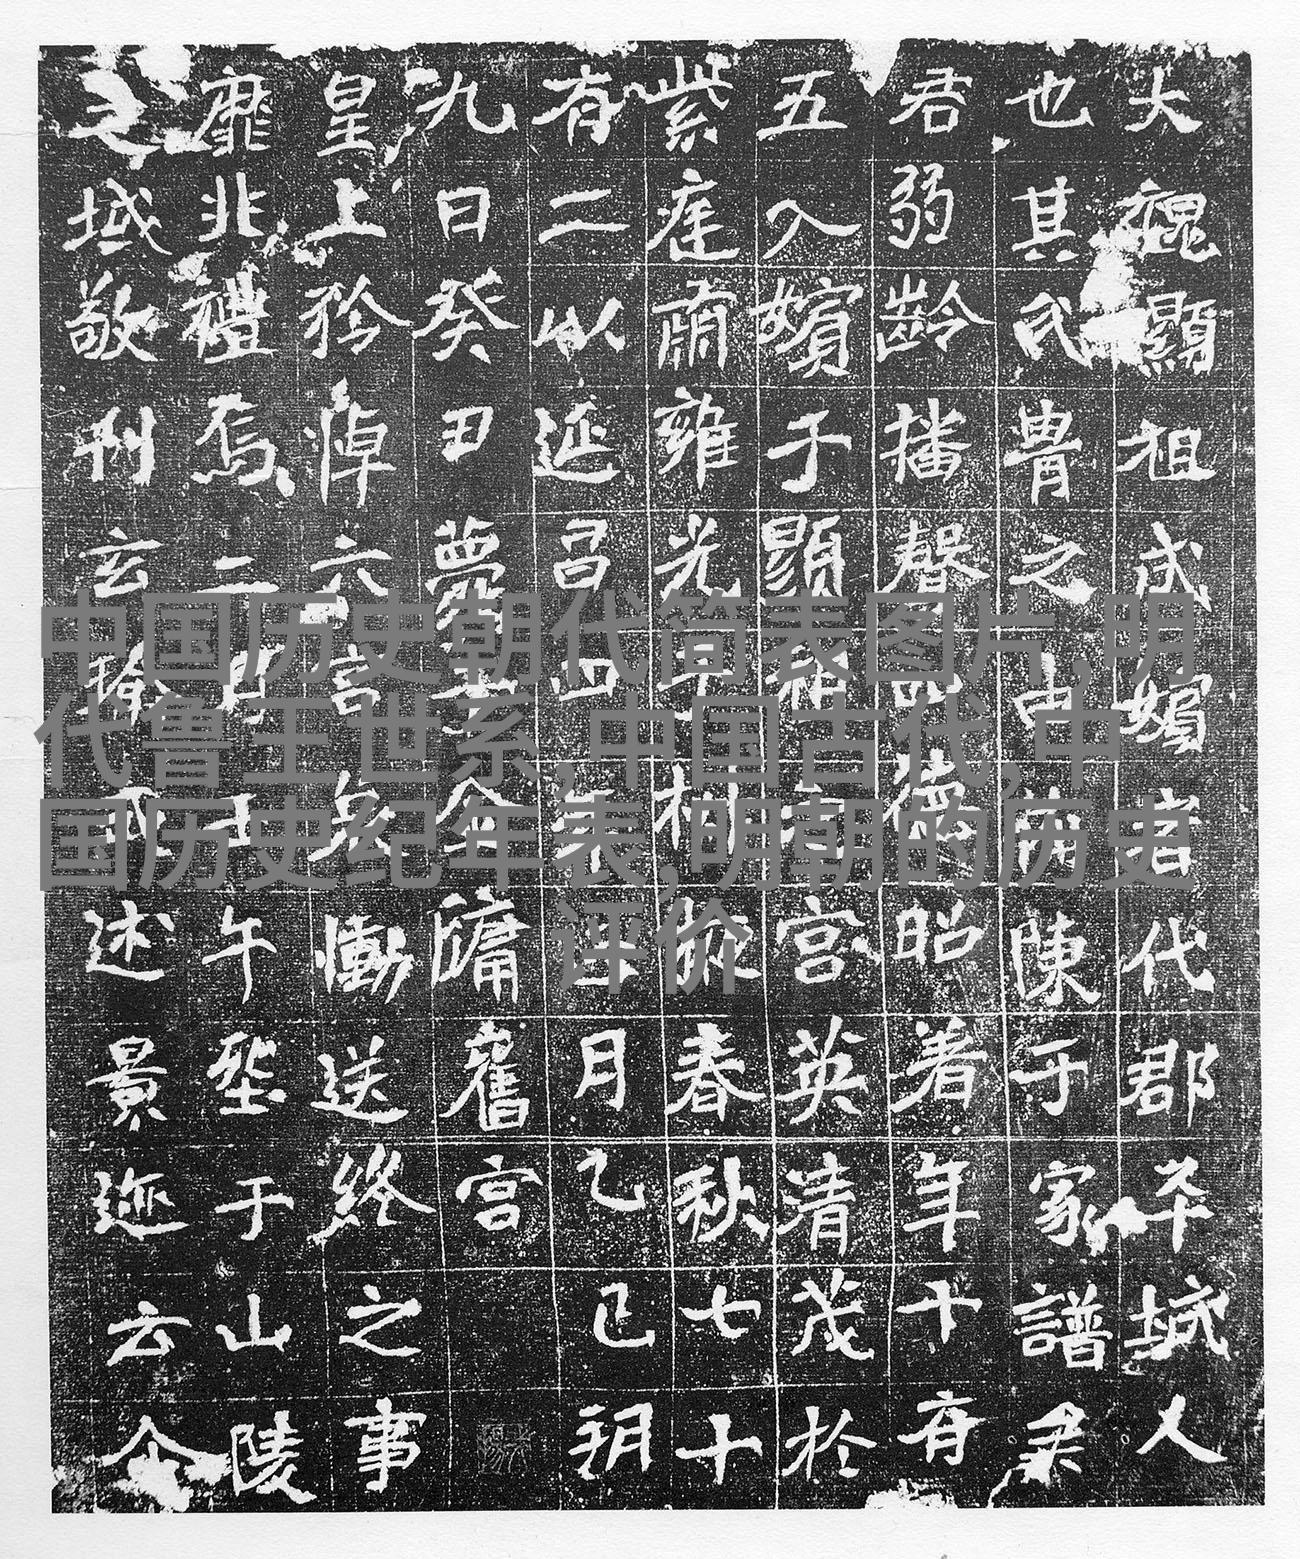 大魏顯祖成嬪者代郡平城人
也其氏冑之由陳于家譜柔
君弱齡播聲四德昭著年十有
五入嬪于顯祖之宮英清茂於
紫庭肅雍光于椒掖春秋七十
有二以延昌四年正月乙已朔
九日癸丑薨于金墉舊宮
皇上矜悼六宮哀慟送終之事
靡非禮焉二月壬午塟于山陵
之域敬刊玄述景迹云尒
中国历史朝代简表图片,明
代鲁王世系,中国古代,中
国历史纪年表,明朝的历史
评价